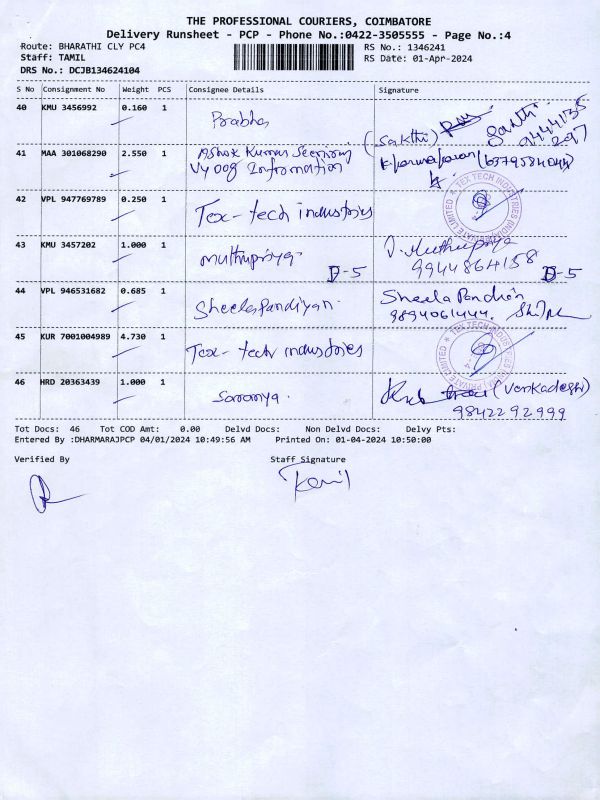 THE PROFESSIONAL COURIERS, COIMBATORE
Delivery Runsheet - PCP - Phone No.:0422-3505555 - Page No.:4
Route: BHARATHI CLY PC4
Staff: TAMIL
DRS No.: DCJB134624104
RS No.: 1346241
RS Date: 01-Apr-2024
S No Consignment No Weight PCS Consignee Details Signature
40 KMU 3456992 0.160 1 Prabha (Sakthi) 9444135
297
41 MAA 301068290 2.550 1 Ashok Kumar
Vyoog Information
42 VPL 947769789 0.250 1 Tex-tech industries
TEX TECH INDUSTRIES PRIVATE LIMITED
43 KMU 3457202 1.000 1 muthupriya D-5 J. Muthupriya
9944864158 D-5
44 VPL 946531682 0.685 1 SheelaPandiyan. Sheela Pandian
9894061444.
45 KUR 7001004989 4.730 1 Tex-tech industries
TEX TECH INDUSTRIES PRIVATE LIMITED
46 HRD 20363439 1.000 1 (Venkadesh)
9842292999
Tot Docs: 46 Tot COD Amt: 0.00 Delvd Docs: Non Delvd Docs: Delvy Pts:
Entered By :DHARMARAJPCP 04/01/2024 10:49:56 AM Printed On: 01-04-2024 10:50:00
Verified By Staff Signature
Tamil